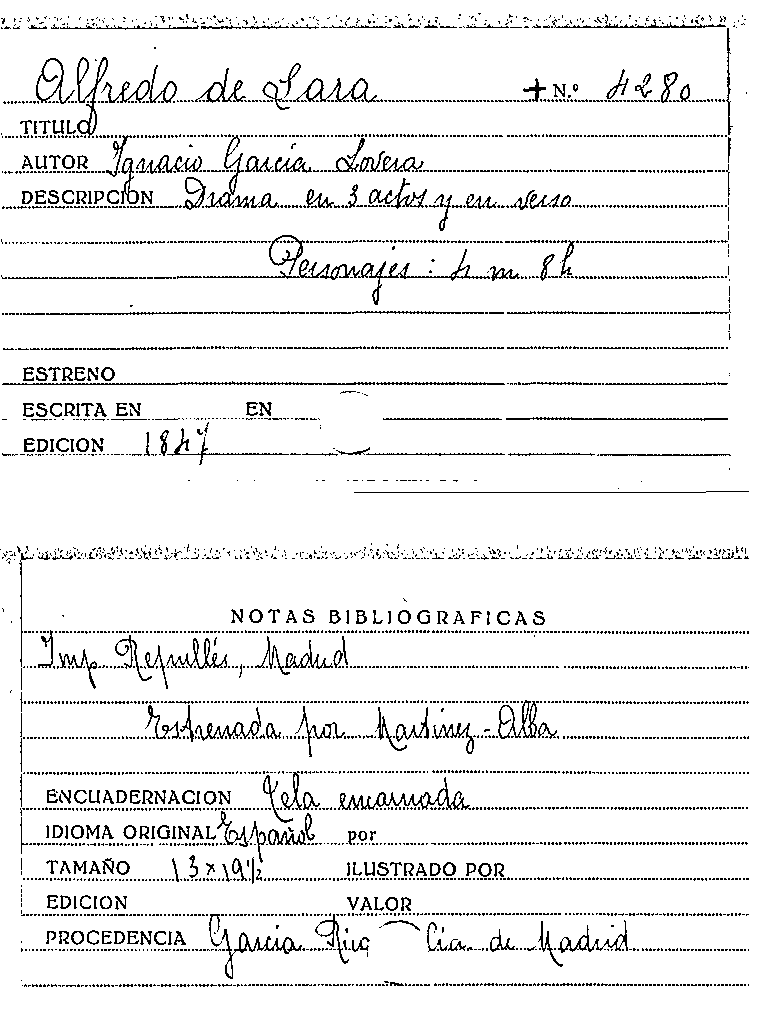 Alfredo de Lara + N.º 4280
TITULO
AUTOR Ignacio García Lovera
DESCRIPCION Drama en 3 actos y en verso
Personajes : 4 m 8h
ESTRENO
ESCRITA EN EN
EDICION 1847
NOTAS BIBLIOGRAFICAS
Imp Repullés, Madrid
Estrenada por Martinez-Alba
ENCUADERNACION Tela encarnada
IDIOMA ORIGINAL Español por
TAMAÑO 13 x 19½ ILUSTRADO POR
EDICION VALOR
PROCEDENCIA Garcia Rico Cia. de Madrid